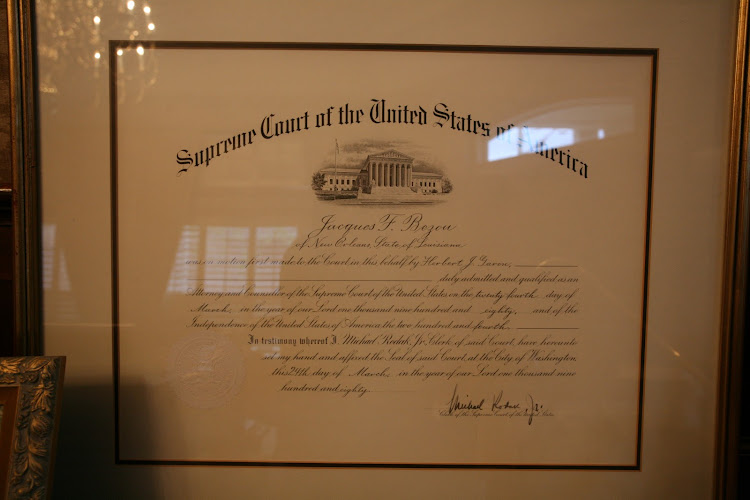 Supreme Court of the United States of America
Jacques F. Bezou
of New Orleans, State of Louisiana
was on motion first made to the Court in this behalf by Herbert J. Garon,
duly admitted and qualified as an
Attorney and Counsellor of the Supreme Court of the United States on the twenty fourth day of
March, in the year of our Lord one thousand nine hundred and eighty, and of the
Independence of the United States of America the two hundred and fourth.
In testimony whereof I, Michael Rodak, Jr. Clerk of said Court, have hereunto
set my hand and affixed the Seal of said Court, at the City of Washington,
this 24th day of March, in the year of our Lord one thousand nine
hundred and eighty.
Michael Rodak, Jr.
Clerk of the Supreme Court of the United States